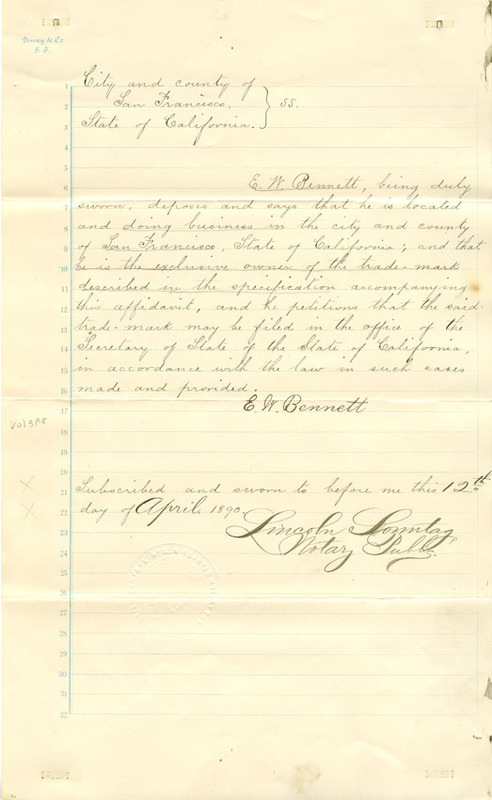 Dewey & Co
S. F.
City and county of
San Francisco, } ss.
State of California.
E. W. Bennett, being duly
sworn, deposes and says that he is located
and doing business in the city and county
of San Francisco, State of California; and that
he is the exclusive owner of the trade-mark
described in the specification accompanying
this affidavit, and he petitions that the said
trade-mark may be filed in the office of the
Secretary of State of the State of California,
in accordance with the law in such cases
made and provided.
E. W. Bennett
Vol 3 P8
Subscribed and sworn to before me this 12th
day of April 1890.
Lincoln Sonntag,
Notary Public.
1
2
3
4
5
6
7
8
9
10
11
12
13
14
15
16
17
18
19
20
21
22
23
24
25
26
27
28
29
30
31
32